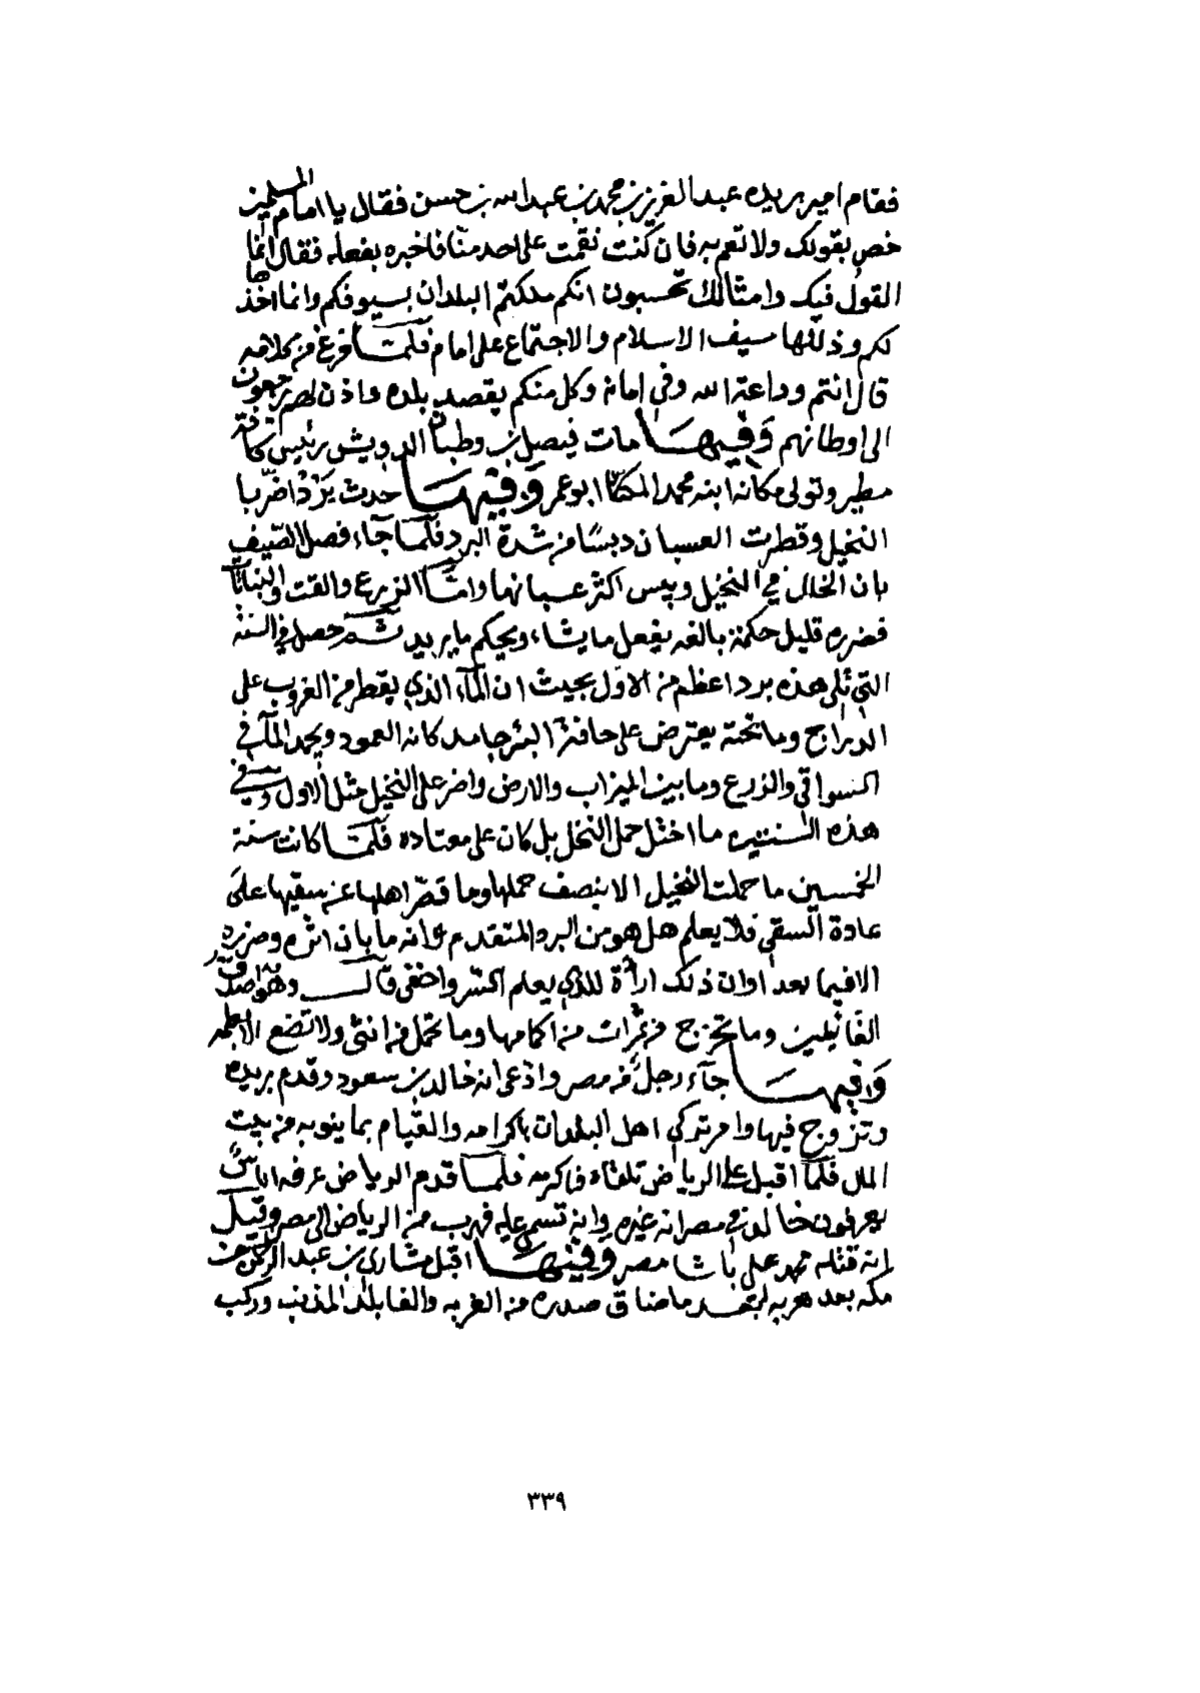 فقام امير بريده عبدالعزيز بن محمد بن عبدالله بن حسن فقال يا امام المسلمين
خص بقولك ولا تعم به فان كنت نقمت على احد منا فاخبره بفعله فقال انما
القول فيك وامثالك تحسبون انكم ملكتم البلدان بسيوفكم وانما اخذها
لكم وذللها سيف الاسلام والاجتماع على امام فلما فرغ من كلامه
قال انتم وداعة الله وفي امانه وكل منكم يقصد بلده واذن لهم يرجعون
الى اوطانهم وفيها مات فيصل بن وطبان الدويش رئيس كافة
مطير وتولى مكانه ابنه محمد المكنا ابو عمر وفيها حدث برد اضر با
النخيل وقطرت العسبان دبسا من شدة البرد فلما جاء فصل الصيف
بان الخلل في النخيل ويبس اكثر عسبانها واما الزرع والقت والنباتات
فضره قليل حكمة بالغه يفعل ما يشاء ويحكم ما يريد ثم حصل في السنة
التي تلي هذه بردا عظم من الاول بحيث ان الماء الذي يقطر من الغروب على
الدراج وما تحته يعترض على حافة البئر جامد كانه العمود ويجمد الماء في
السواقي والزرع وما بين الميزاب والارض واضر على النخيل مثل الاول وفي
هذه السنتين ما اختل حمل النخل بل كان على معتاده فلما كانت سنة
الخمسين ما حملت النخيل الا بنصف حملها وما قصر اهلها عن سقيها على
عادة السقي فلا يعلم هل هو من البرد المتقدم لانه ما بان اثره وضرره
الافيما بعد اوان ذلك ارادة للذي يعلم السر واخفى قال وهو اصدق
القائلين وما تخرج من ثمرات من اكمامها وما تحمل من انثى ولا تضع الا بعلمه
وفيها جاء رجل من مصر وادعى انه خالد بن سعود وقدم بريده
وتزوج فيها وامر تركي اهل البلدان باكرامه والقيام بما ينوبه من بيت
المال فلما اقبل على الرياض تلقاه فاكرمه فلما قدم الرياض عرفه اناس
يعرفون خالد في مصر انه غيره وانه تسمى عليه فهرب من الرياض الى مصر وقيل
انه قتله محمد علي باشا مصر وفيها اقبل مشاري بن عبد الرحمن من
مكه بعد هربه لبعد ما ضاق صدره من الغربه والفا بلد المذنب وركب
٣٣٩